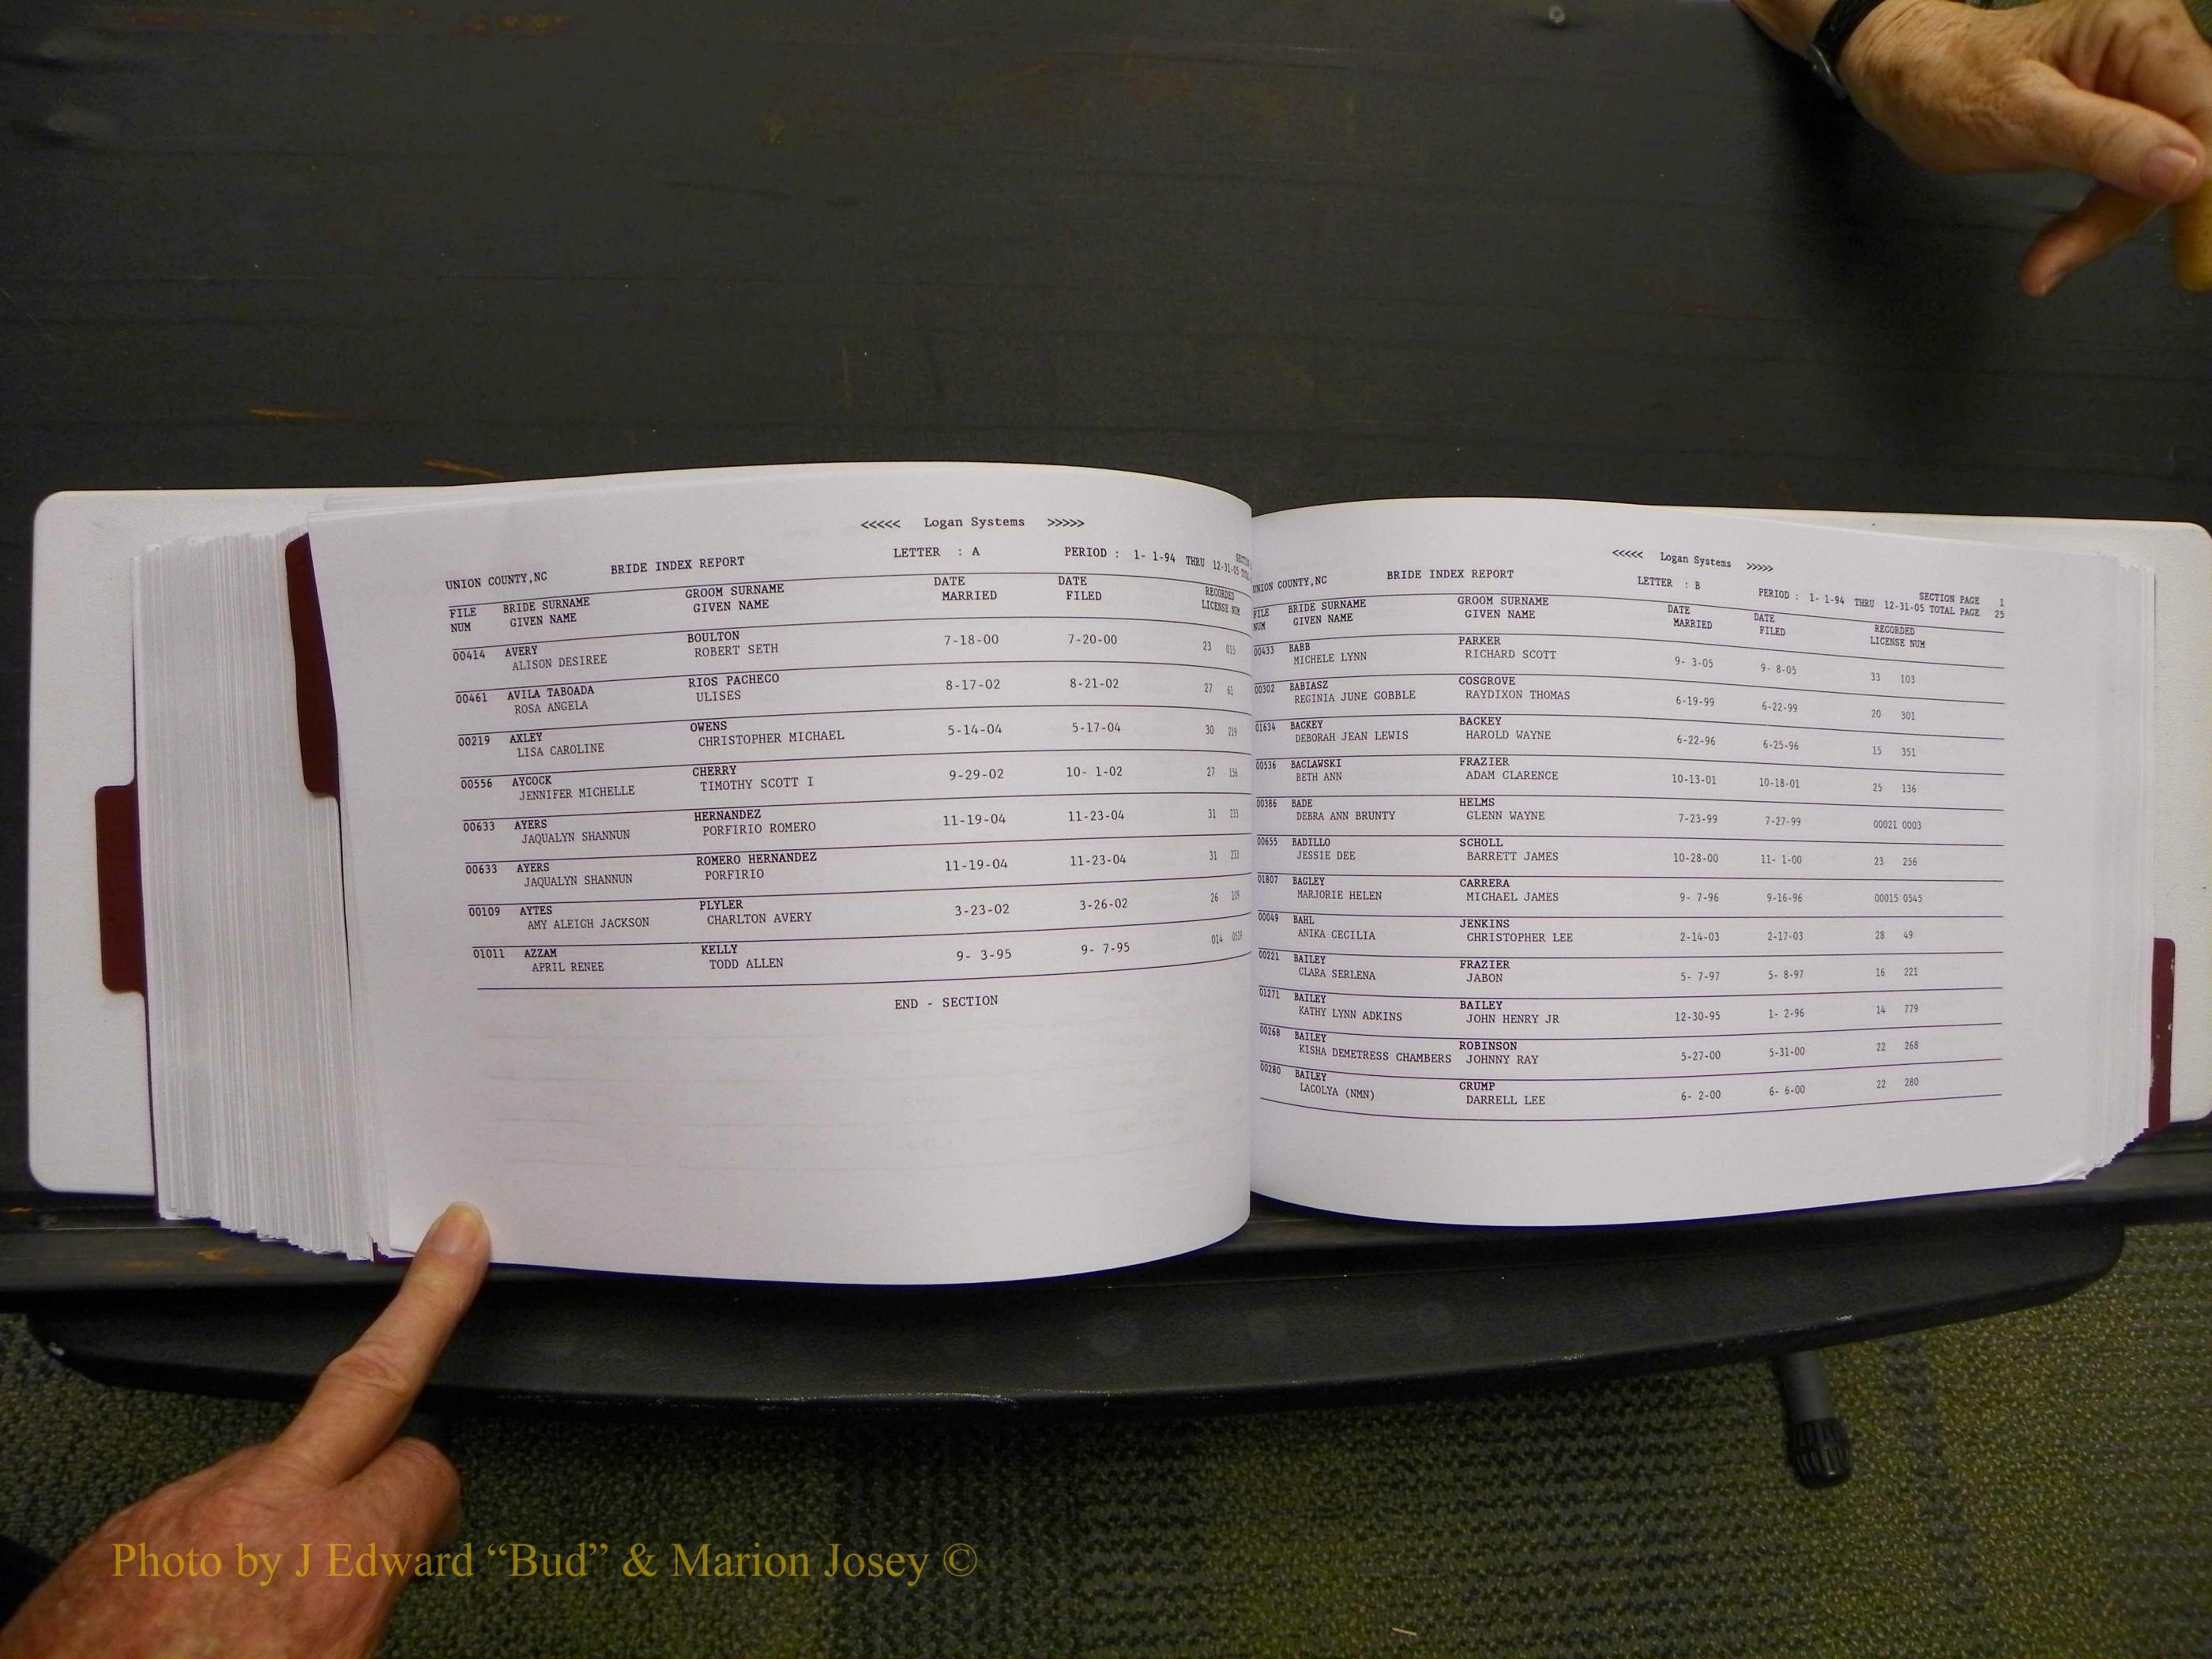 <<<<< Logan Systems >>>>>
UNION COUNTY,NC BRIDE INDEX REPORT LETTER : A PERIOD : 1- 1-94 THRU 12-31-05
FILE BRIDE SURNAME GROOM SURNAME DATE DATE RECORDED
NUM GIVEN NAME GIVEN NAME MARRIED FILED LICENSE NUM
00414 AVERY BOULTON 7-18-00 7-20-00 23 015
ALISON DESIREE ROBERT SETH
00461 AVILA TABOADA RIOS PACHECO 8-17-02 8-21-02 27 61
ROSA ANGELA ULISES
00219 AXLEY OWENS 5-14-04 5-17-04 30 219
LISA CAROLINE CHRISTOPHER MICHAEL
00556 AYCOCK CHERRY 9-29-02 10- 1-02 27 156
JENNIFER MICHELLE TIMOTHY SCOTT I
00633 AYERS HERNANDEZ 11-19-04 11-23-04 31 233
JAQUALYN SHANNUN PORFIRIO ROMERO
00633 AYERS ROMERO HERNANDEZ 11-19-04 11-23-04 31 233
JAQUALYN SHANNUN PORFIRIO
00109 AYTES PLYLER 3-23-02 3-26-02 26 109
AMY ALEIGH JACKSON CHARLTON AVERY
01011 AZZAM KELLY 9- 3-95 9- 7-95 014
APRIL RENEE TODD ALLEN
END - SECTION
<<<<< Logan Systems >>>>>
UNION COUNTY,NC BRIDE INDEX REPORT LETTER : B SECTION PAGE 1
PERIOD : 1- 1-94 THRU 12-31-05 TOTAL PAGE 25
FILE BRIDE SURNAME GROOM SURNAME DATE DATE RECORDED
NUM GIVEN NAME GIVEN NAME MARRIED FILED LICENSE NUM
00433 BABB PARKER 9- 3-05 9- 8-05 33 103
MICHELE LYNN RICHARD SCOTT
00302 BABIASZ COSGROVE 6-19-99 6-22-99 20 301
REGINIA JUNE GOBBLE RAYDIXON THOMAS
01634 BACKEY BACKEY 6-22-96 6-25-96 15 351
DEBORAH JEAN LEWIS HAROLD WAYNE
00536 BACLAWSKI FRAZIER 10-13-01 10-18-01 25 136
BETH ANN ADAM CLARENCE
00386 BADE HELMS 7-23-99 7-27-99 00021 0003
DEBRA ANN BRUNTY GLENN WAYNE
00655 BADILLO SCHOLL 10-28-00 11- 1-00 23 256
JESSIE DEE BARRETT JAMES
01807 BAGLEY CARRERA 9- 7-96 9-16-96 00015 0545
MARJORIE HELEN MICHAEL JAMES
00049 BAHL JENKINS 2-14-03 2-17-03 28 49
ANIKA CECILIA CHRISTOPHER LEE
00221 BAILEY FRAZIER 5- 7-97 5- 8-97 16 221
CLARA SERLENA JABON
01271 BAILEY BAILEY 12-30-95 1- 2-96 14 779
KATHY LYNN ADKINS JOHN HENRY JR
00268 BAILEY ROBINSON 5-27-00 5-31-00 22 268
KISHA DEMETRESS CHAMBERS JOHNNY RAY
00280 BAILEY CRUMP 6- 2-00 6- 6-00 22 280
LACOLYA (NMN) DARRELL LEE
Photo by J Edward “Bud” & Marion Josey ©